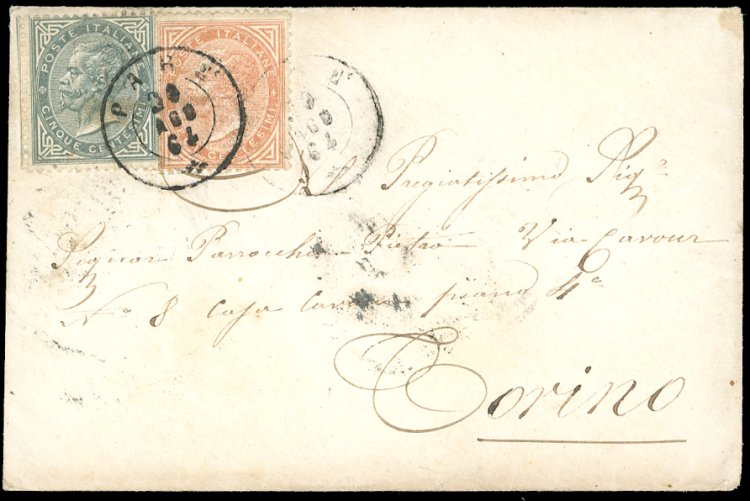 POSTE ITALIANE
CINQUE CENTESIMI
POSTE ITALIANE
CENTESIMI
PARE'
30
AGO
64
Al Pregiatissimo Sigr.
Signor Parrocchia Pietro Via Cavour
No. 8 casa piano 4o
Torino